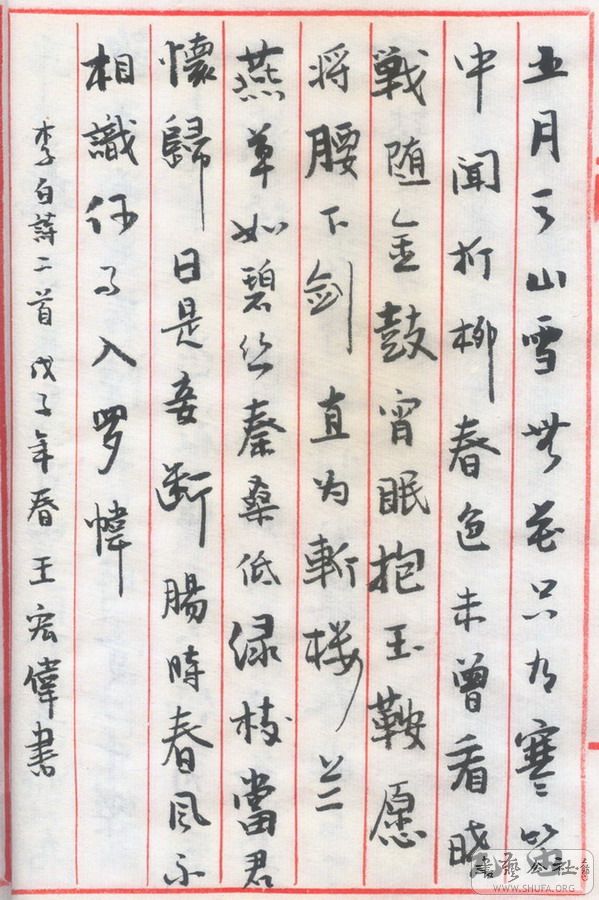 五月天山雪無花只有寒笛
中聞折柳春色未曾看曉
戦随金鼓宵眠抱玉鞍愿
将腰下剑直为斬楼兰
燕草如碧丝秦桑低绿枝當君
懷歸日是妾断腸時春風不
相識何事入罗幃
李白詩二首 戊子年春 王宏偉書
書藝公社
WWW.SHUFA.ORG